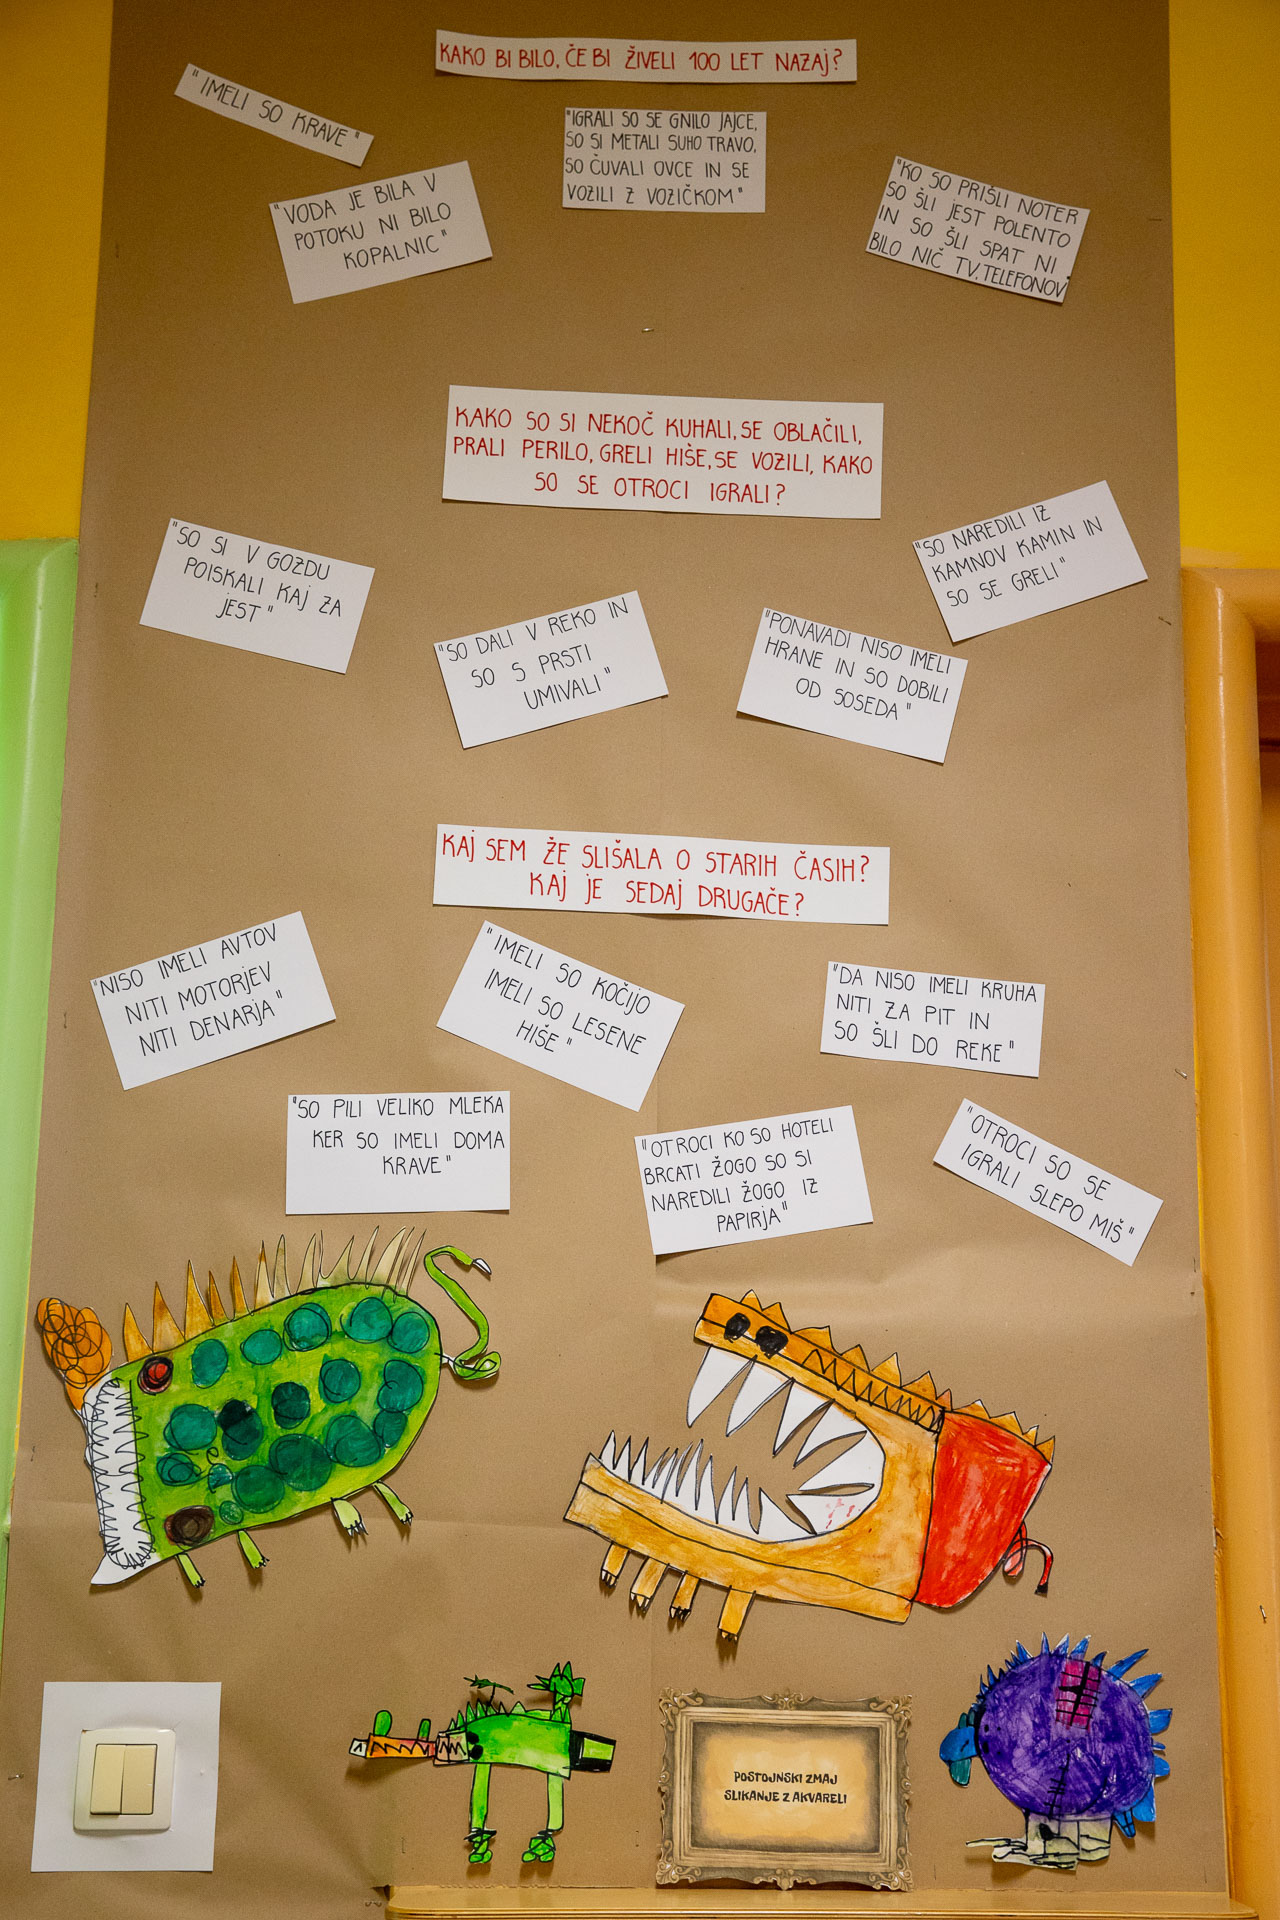 KAKO BI BILO, ČE BI ŽIVELI 100 LET NAZAJ?
"IMELI SO KRAVE"
"IGRALI SO SE GNILO JAJCE,
SO SI METALI SUHO TRAVO,
SO ČUVALI OVCE IN SE
VOZILI Z VOZIČKOM"
"VODA JE BILA V
POTOKU NI BILO
KOPALNIC"
"KO SO PRIŠLI NOTER
SO ŠLI JEST POLENTO
IN SO ŠLI SPAT NI
BILO NIČ TV.TELEFONOV
KAKO SO SI NEKOČ KUHALI, SE OBLAČILI,
PRALI PERILO, GRELI HIŠE, SE VOZILI, KAKO
SO SE OTROCI IGRALI?
"SO SI V GOZDU
POISKALI KAJ ZA
JEST"
"SO DALI V REKO IN
SO S PRSTI
UMIVALI"
"PONAVADI NISO IMELI
HRANE IN SO DOBILI
OD SOSEDA"
"SO NAREDILI IZ
KAMNOV KAMIN IN
SO SE GRELI"
KAJ SEM ŽE SLIŠALA O STARIH ČASIH?
KAJ JE SEDAJ DRUGAČE?
"NISO IMELI AVTOV
NITI MOTORJEV
NITI DENARJA"
"IMELI SO KOČIJO
IMELI SO LESENE
HIŠE"
"DA NISO IMELI KRUHA
NITI ZA PIT IN
SO ŠLI DO REKE"
"SO PILI VELIKO MLEKA
KER SO IMELI DOMA
KRAVE"
"OTROCI KO SO HOTELI
BRCATI ŽOGO SO SI
NAREDILI ŽOGO IZ
PAPIRJA"
"OTROCI SO SE
IGRALI SLEPO MIŠ"
POSTOJNSKI ZMAJ
SLIKANJE Z AKVARELI